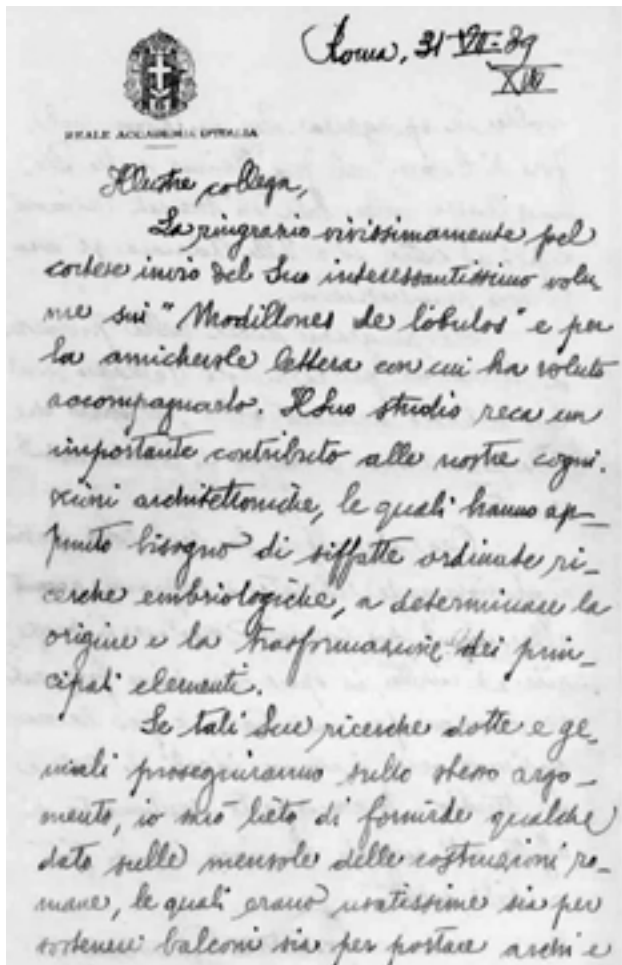 Roma, 31 VII-39
XVII
REALE ACCADEMIA D'ITALIA
Illustre collega,
La ringrazio vivissimamente pel
cortese invio del Suo interessantissimo volu-
me sui "Modillones de lóbulos" e per
la amichevole lettera con cui ha voluto
accompagnarlo. Il Suo studio reca un
importante contributo alle nostre cogni-
zioni architettoniche, le quali hanno ap-
punto bisogno di siffatte ordinate ri-
cerche embriologiche, a determinare la
origine e la trasformazione dei prin-
cipali elementi.
Se tali Sue ricerche dotte e ge-
niali proseguiranno sullo stesso argo-
mento, io sarò lieto di fornirle qualche
dato sulle mensole delle costruzioni ro-
mane, le quali erano usatissime sia per
sostenere balconi sia per portare archi e